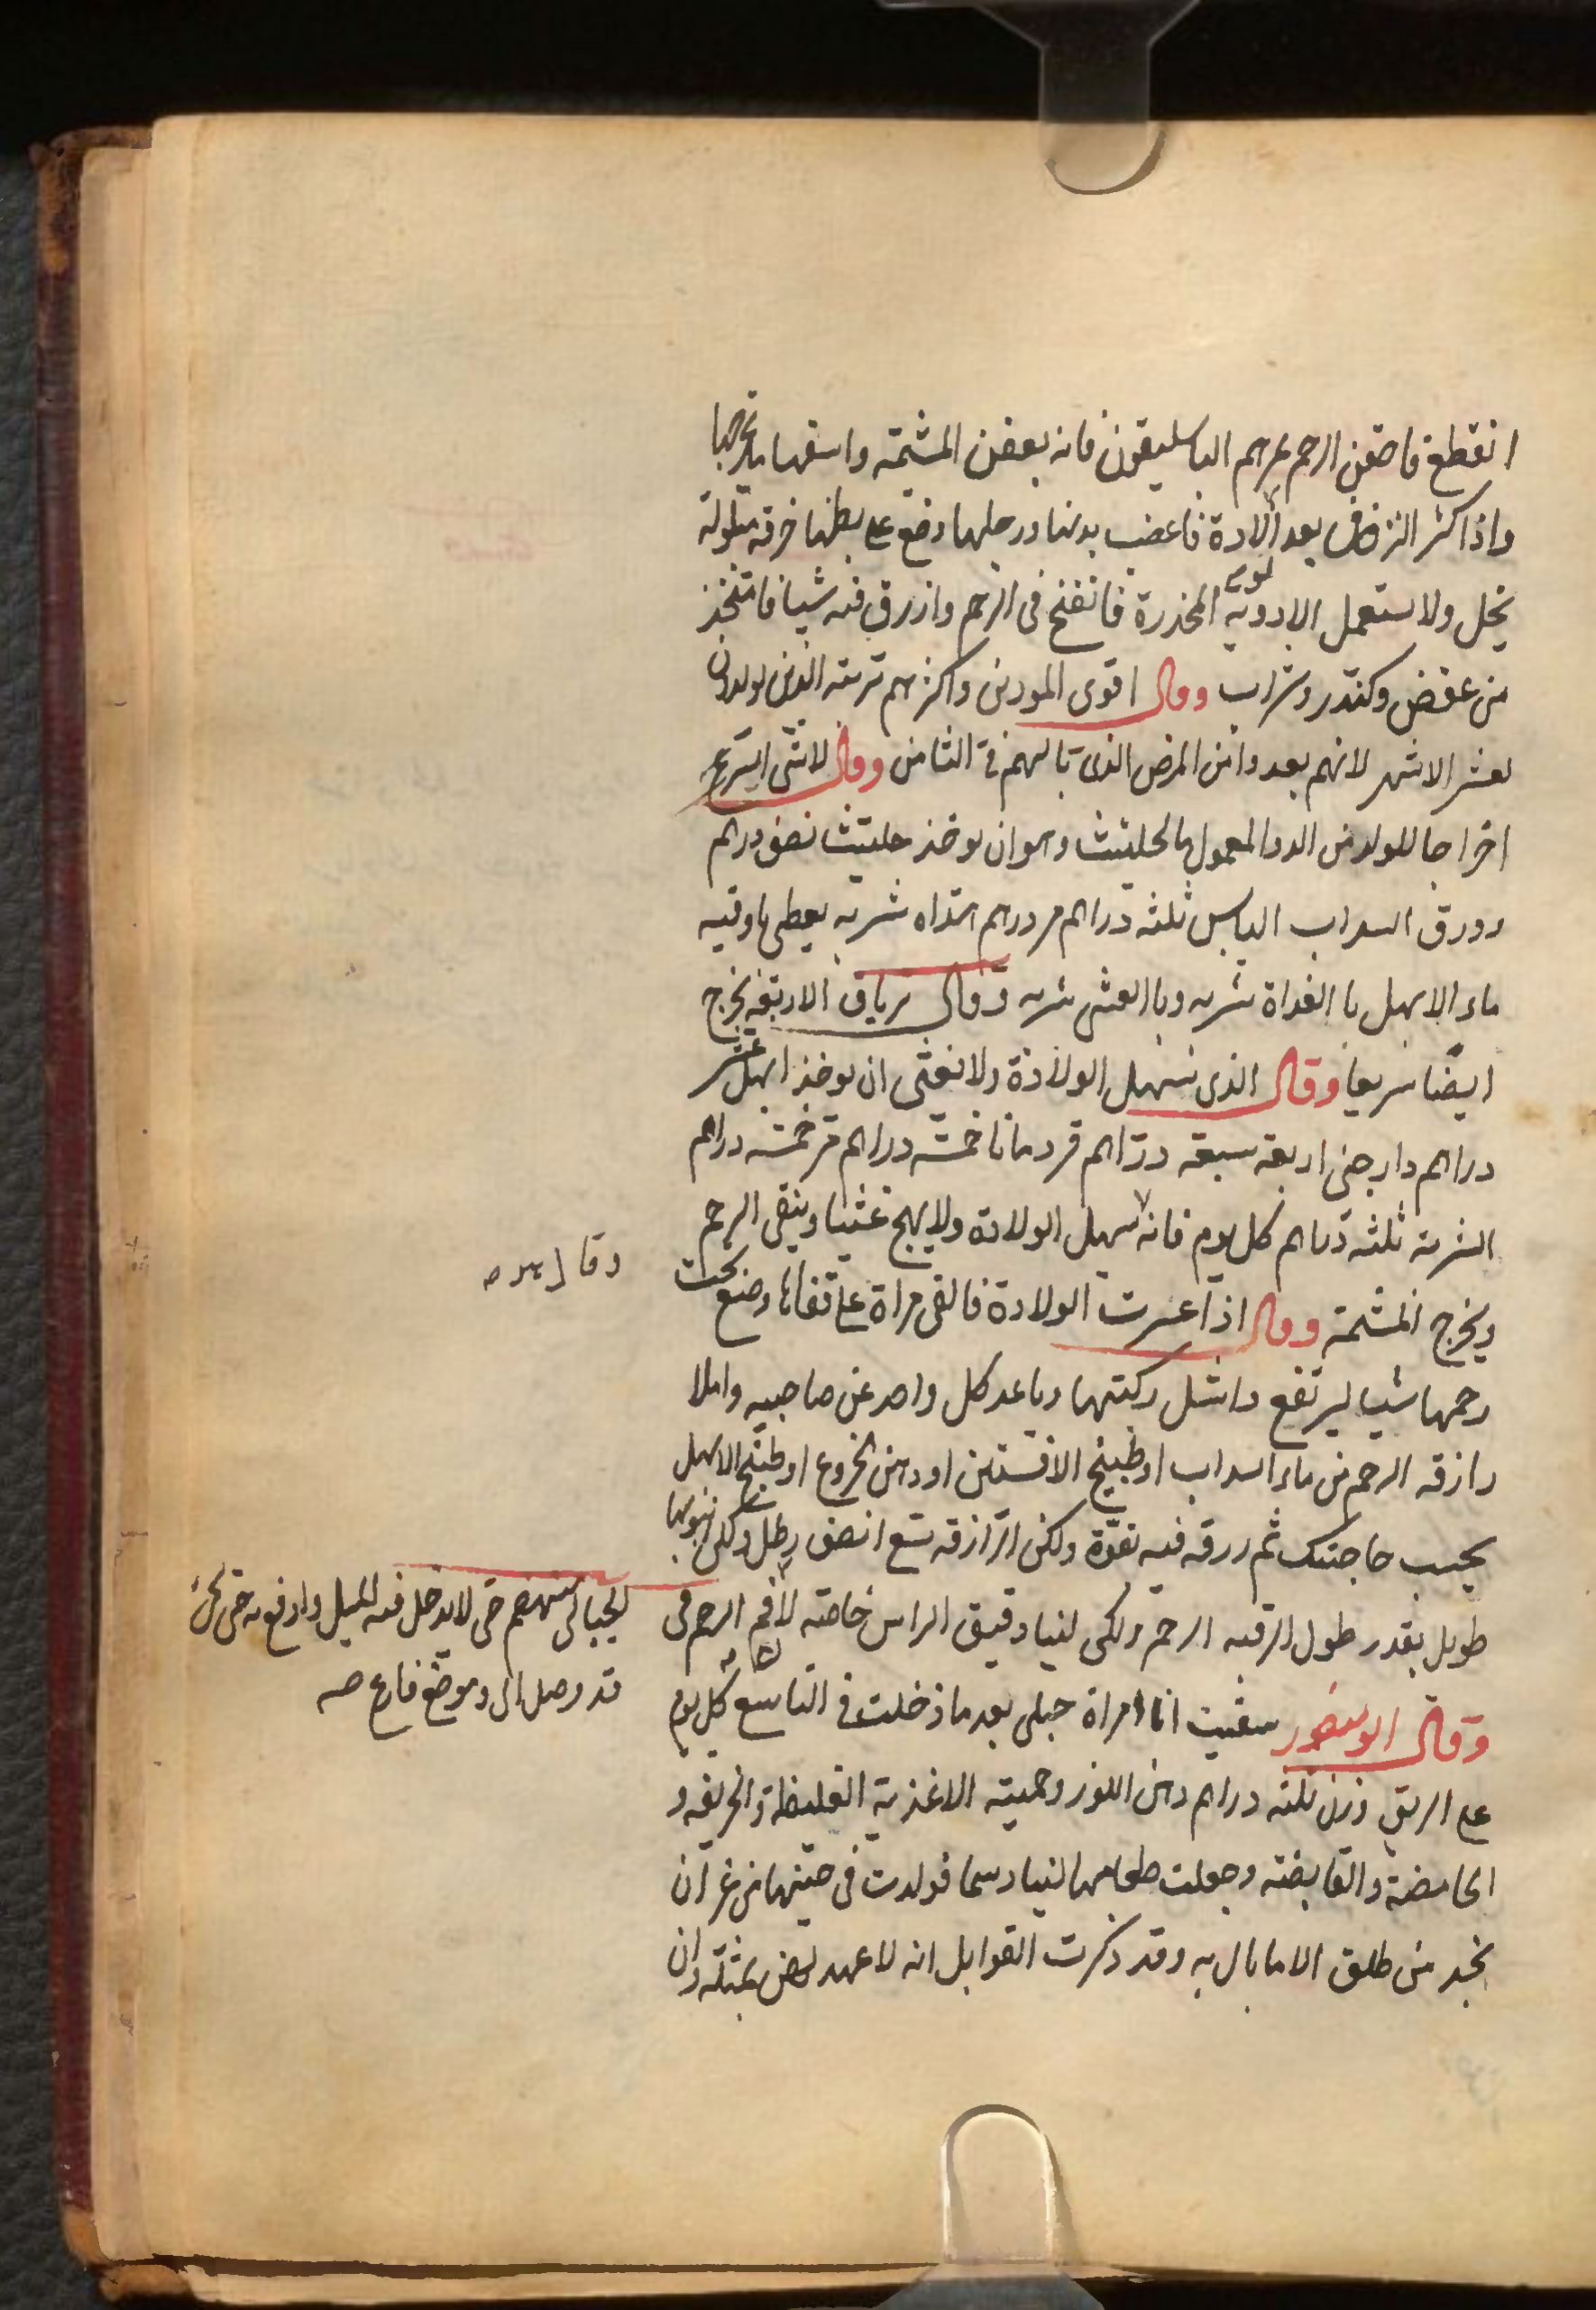 انقطع فاحقن الرحم بمرهم الباسليقون فانه يعفن المشيمة واسقها ما يخرجها
واذا كثر النزف بعد الولادة فاعضب يديها ورجليها وضع على بطنها خرقة مبلولة
بخل ولا يستعمل الادوية المخدرة فانفخ فى الرحم وازرق فيه شيافا متخذ
من عفص وكندر وشراب وقال اقوى المولودين واكثرهم تربية الذين يولدون
لعشر الاشهر لانهم بعدوا من المرض الذى نالهم فى الثامن وقال لا شى اسرع
اخراجا للولد من الدوا المعمول بالحلتيت وهو ان يوخذ حلتيت نصف درهم
وورق السداب اليابس ثلثة دراهم مر درهم هذاه شربه يعطى باوقيه
ماء الابهل با الغداة شربه وبا العشى شربه وقال ترياق الاربعة يخرج
ايضا سريعا وقال الذى يسهل الولادة ولا يغثى ان يوخذ ابهل عشر
دراهم دارصنى اربعة سبعة دراهم قردمانا خمسة دراهم مر خمسة دراهم
الشربة ثلثة دراهم كل يوم فانه يسهل الولادة ولا يهيج غثيا وينقى الرحم
ويخرج المشيمة وقال اذا عسرت الولادة فالقى مراة على قفاها وضع تحت
رحمها شيا ليرتفع واشل ركبتها وباعد كل واحد عن صاحبه واملا
رازقه الرحم من ماء السداب او طبيخ الافسنتين او دهن الخروع او طبيخ الابهل
بحسب حاجتك ثم زرقه فيه بقوة ولكن الزرازقه تسع انصف رطل ولكن انبوبها
طويل بقدر طول الرقبه الرحم ولكن لينا دقيق الراس خاصة لان فم الرحم فى
الحبالى منهضم حتى لا يدخل فيه الميل وادفع به حتى تحس
قد وصل الى موضع فارغ صح
وقال ابو منصور سقيت انا امراة حبلى بعد ما دخلت فى التاسع كل يوم
على الريق وزن ثلثة دراهم دهن اللوز وحميته الاغذية الغليظة والحريفة و
الحامضة والقابضة وجعلت طعامها لينا دسما فولدت فى حينها من غير ان
تجد من طلق الا ما بال به وقد ذكرت القوابل انه لا عهد لهن بمثله وان